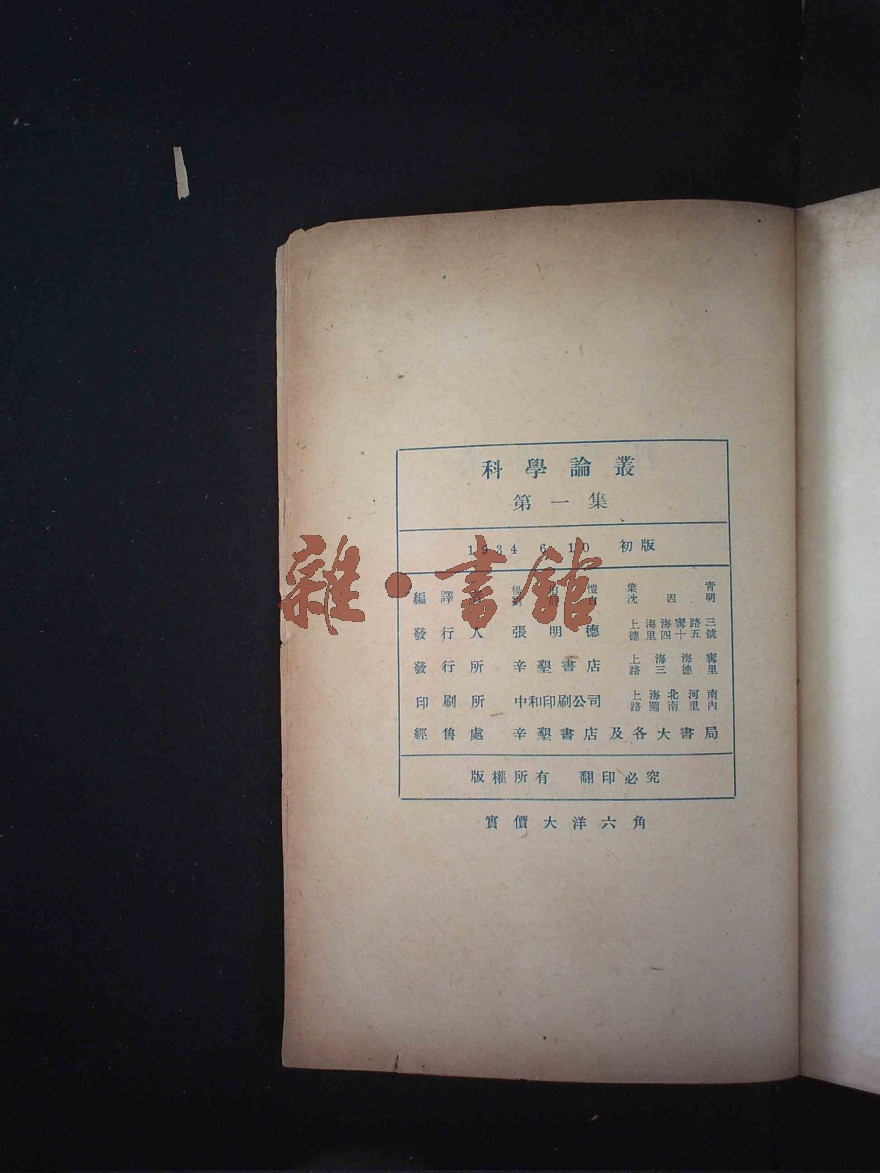 科學論叢
第一集
1934 6 10 初版
編譯者 葉青
沈因明
發行人 張明德 上海海甯路三
德里四十五號
發行所 辛墾書店 上海海甯
路三德里
印刷所 中和印刷公司 上海北河南
路圖南里內
經售處 辛墾書店及各大書局
版權所有 翻印必究
實價大洋六角
雜·書館